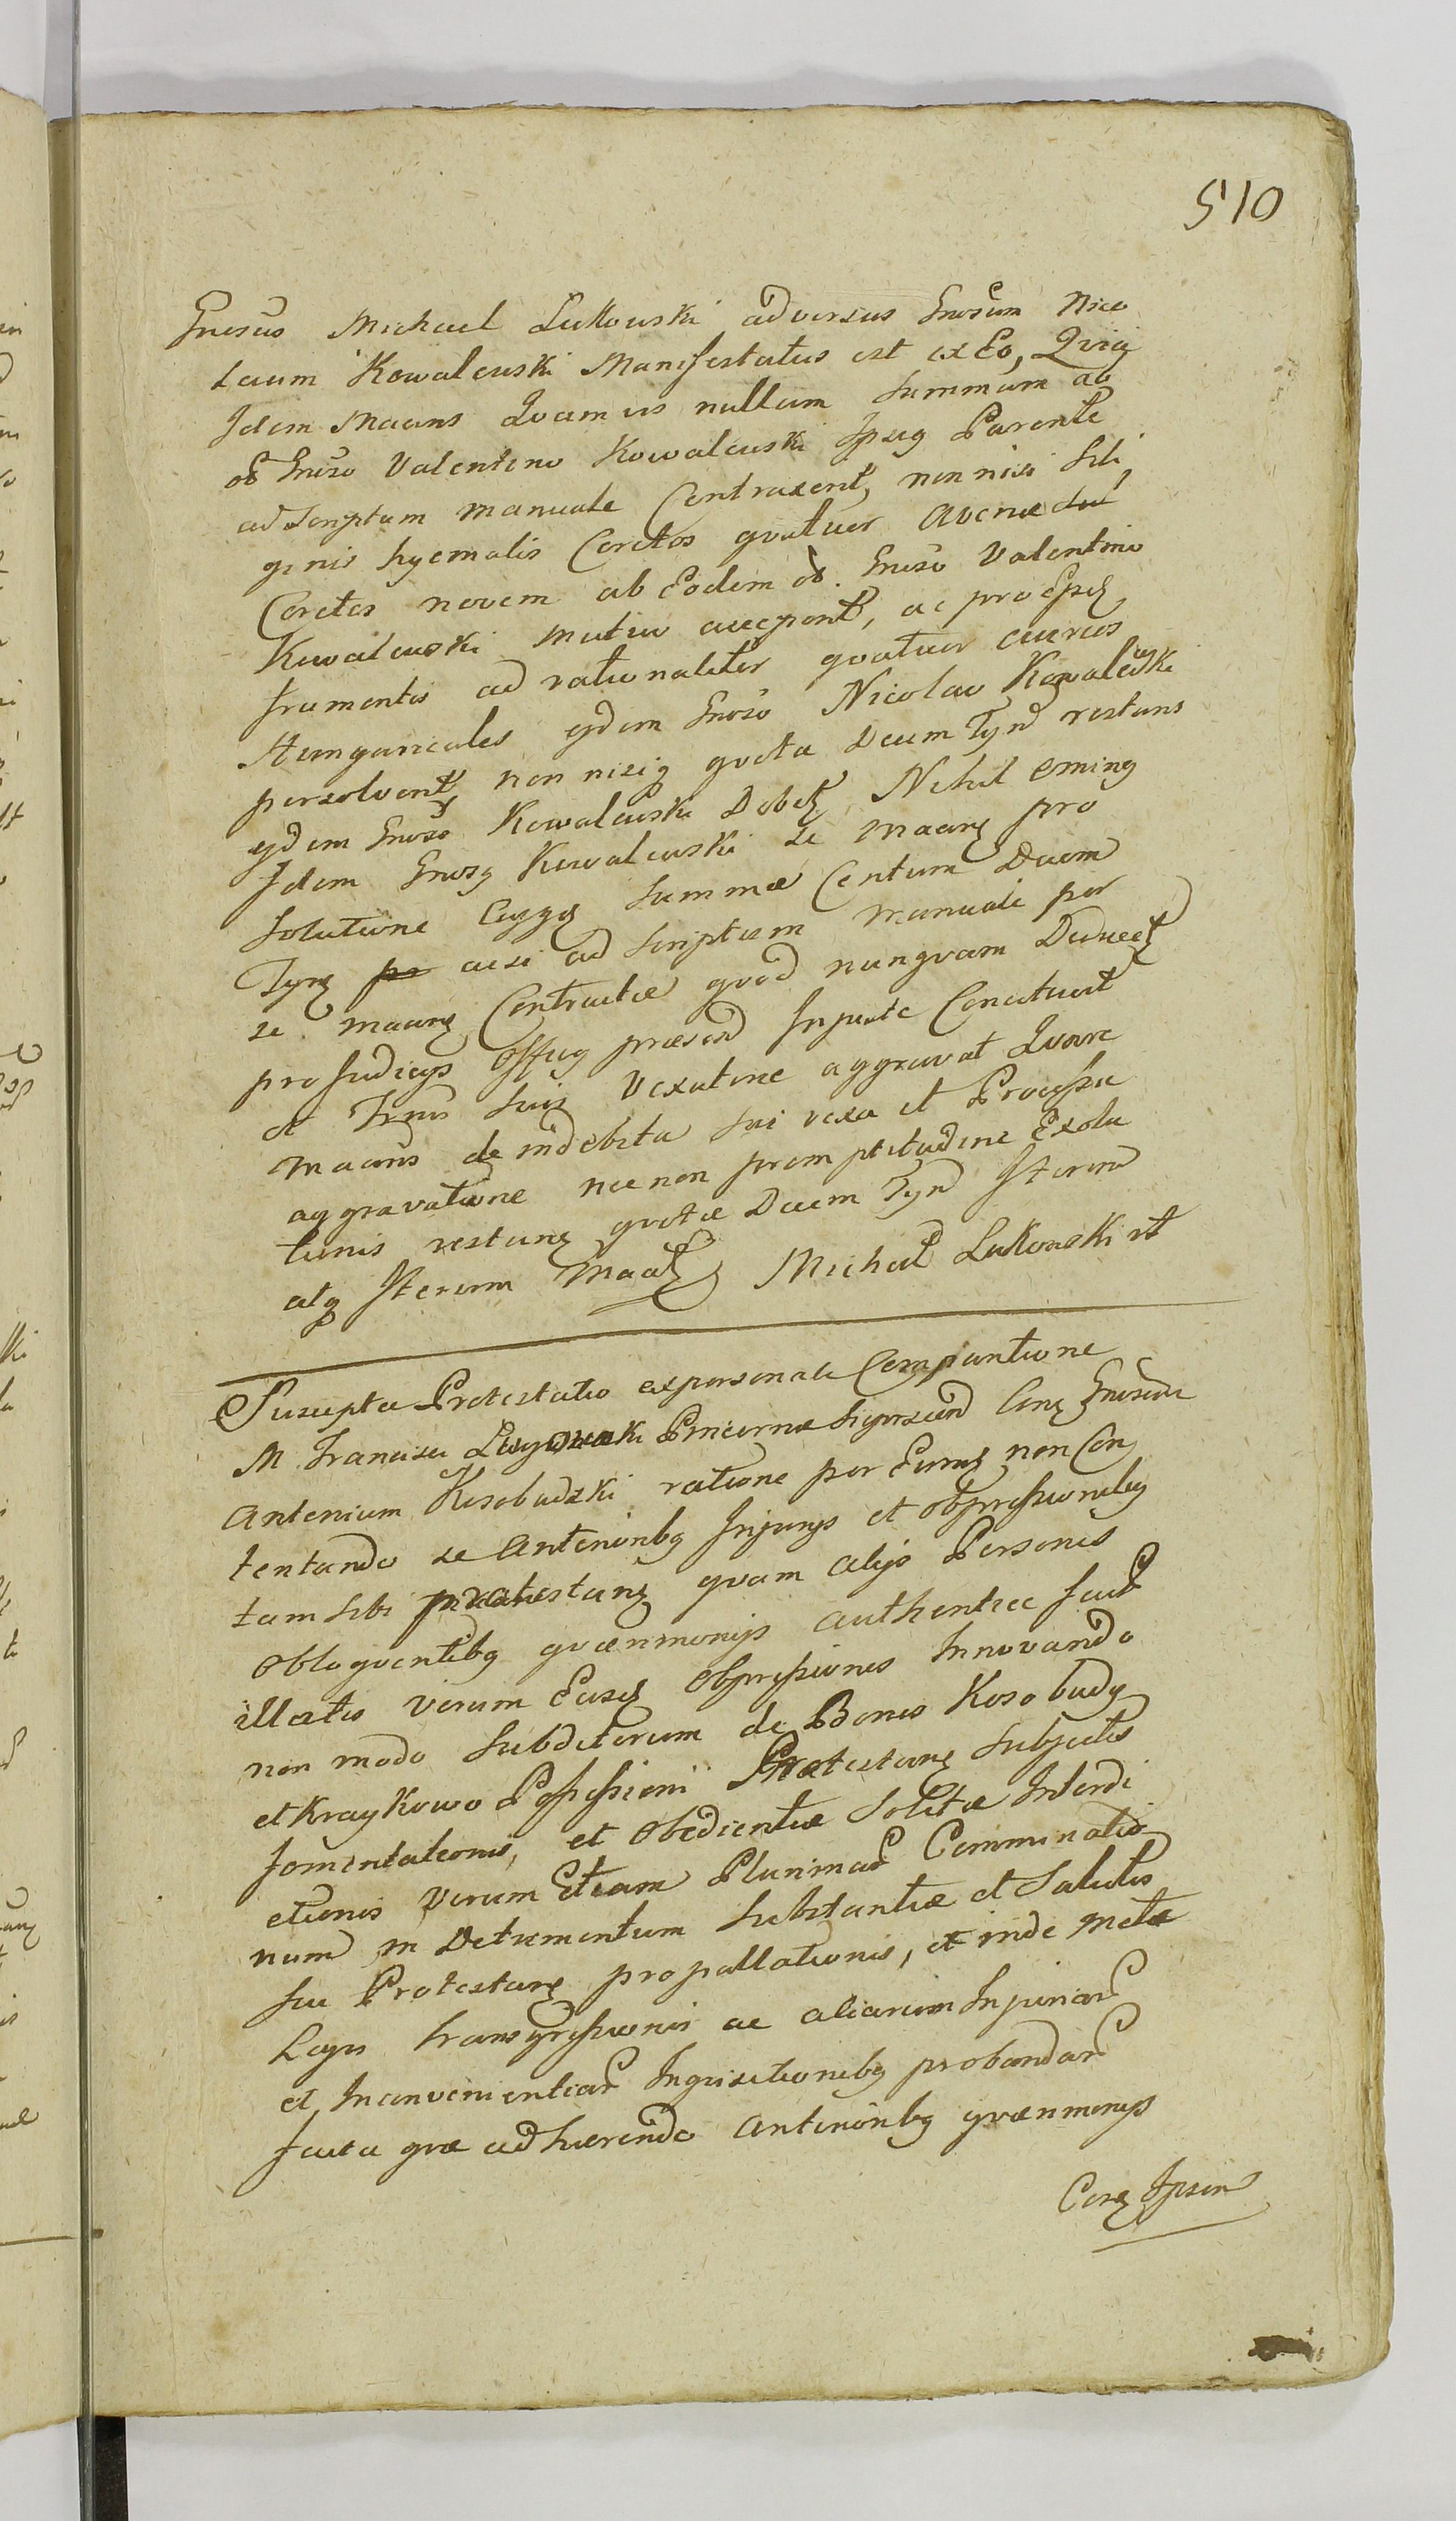 510
Gnosus Michael Lukowski adversus Gnosum Nico
laum Kowalewski Manifestatus est ex Eo, Quia
Idem Maans Quamvis nullam summam ab
ol Gnoso Valentino Kowalewski Ipsius Parente
ad scriptum manuale Contraxerit, non nisi sili
ginis hyemalis Coretos quatuor avenae sed
Coretos novem ab Eodem ol. Gnoso Valentino
Kowalewski mutuo acceperit, ac pro Ipsis
frumentis ad rationaliter quatuor aureos
Hungaricales eidem Gnoso Nicolao Kowalewski
persolverit, non nisi quota Decem Tynf restans
eidem Gnoso Kowalewski Debetur Nihil eminus
Idem Gnosus Kowalewski se Maanem pro
solutione summae Centum Decem
Tynf acsi ad scriptum manuale per
se Maanem Contractae quod nunquam Deducet
pro Judicijs Offii praesen Injuste Concitavit
et Trmis suis vexatione aggravat Quare
Maans de indebita sui vexa et Processu
aggravatione nec non promptitudine Exolu
tionis restans quotae Decem Tynf Iterum
atq Iterum Maatur Michał Lukowski mp
Suscepta Protestatio ex personali Comparitione
M. Francisci Pincernae Contra Gnosum
Antonium Kosobudzki ratione per Eundem non Con
tentando se Anterioribus Injurijs et oppressionibus
tam sibi Protestanti quam alijs Personis
obloquentibus quaerimonijs authentice fact
illatis verum Easdem Oppressiones Innovando
non modo subditorum de Bonis Kosobudy
et Kraykowo Possessioni Protestantis subjectis
fomentationis, et obedientiae solitae Interdi
ctionis verum Etiam Plurimar Comminatio
num in Detrimentum substantiae et salutis
suae Protestantis propallationis, et inde metae
Legis transgressionis ac aliarum Injuriar
et Inconvenientiar Inquisitionibus probandar
facta quae adhaerendo anterioribus quaerimonijs
Cora Ipsim